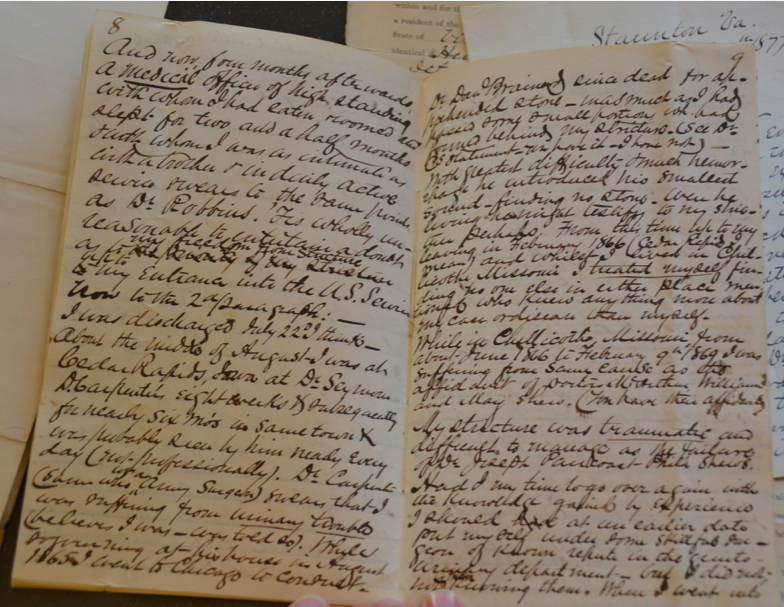 8
And now, four months afterwards
a medical officer of high standing
with whom I had eaten, roomed and
slept for two and a half months
& with whom I was as intimate as
with a brother & in daily active
service swears to the same points
as Dr Robbins. It is wholly un-
reasonable to entertain a doubt
as to my freedom from stricture
up to
my entrance into the U.S. Service
Now to the 2d paragraph: —
I was discharged July 22d
About the middle of August I was at
Cedar Rapids, Iowa at Dr Seymour
D Carpenter's eight weeks & subsequently
for nearly six mo's in same town &
was probably seen by him nearly every
day (not professionally). Dr. Carpent-
(Surgeon) swears that I
was suffering from urinary trouble
(believes I was – was told so). While
sojourning at his house in August
1865 I went to Chicago to consult –
9
Dr Dan'l Brainerd since dead for ap-
prehended stone – inasmuch as I had
passed some small portion
behind my stricture. (See Dr
statement – you have it – I have not) –
With greatest difficulty & much hemor-
rhage he introduced his smallest
sound – finding no stone. Were he
living he might testify to my
perhaps. From this time up to my
leaving in February 1866 (Cedar Rapids I
mean) and whilst I lived in Chil-
licothe Missouri I treated myself fin-
ding no one else in either place men-
tioned who knew anything more about
my case or disease than myself.
While in Chillicothe Missouri from
about June 1866 to February 9th 1869 I was
suffering from same cause as the
affidavit of Doctor McArthur Williams
and May shews. (You have their affidavits)
My stricture was traumatic and
difficult to manage as the failure
of Dr. Joseph Pancoast Phila shews.
Had I my time to go over again with
the knowledge gained by experience
I should at an earlier date
put my self under some skilful sur-
geon of known repute in the genito-
urinary department – but I did not
them. When I went into
within and for th
a resident of the
State of
identical
Staunton Va.
1877